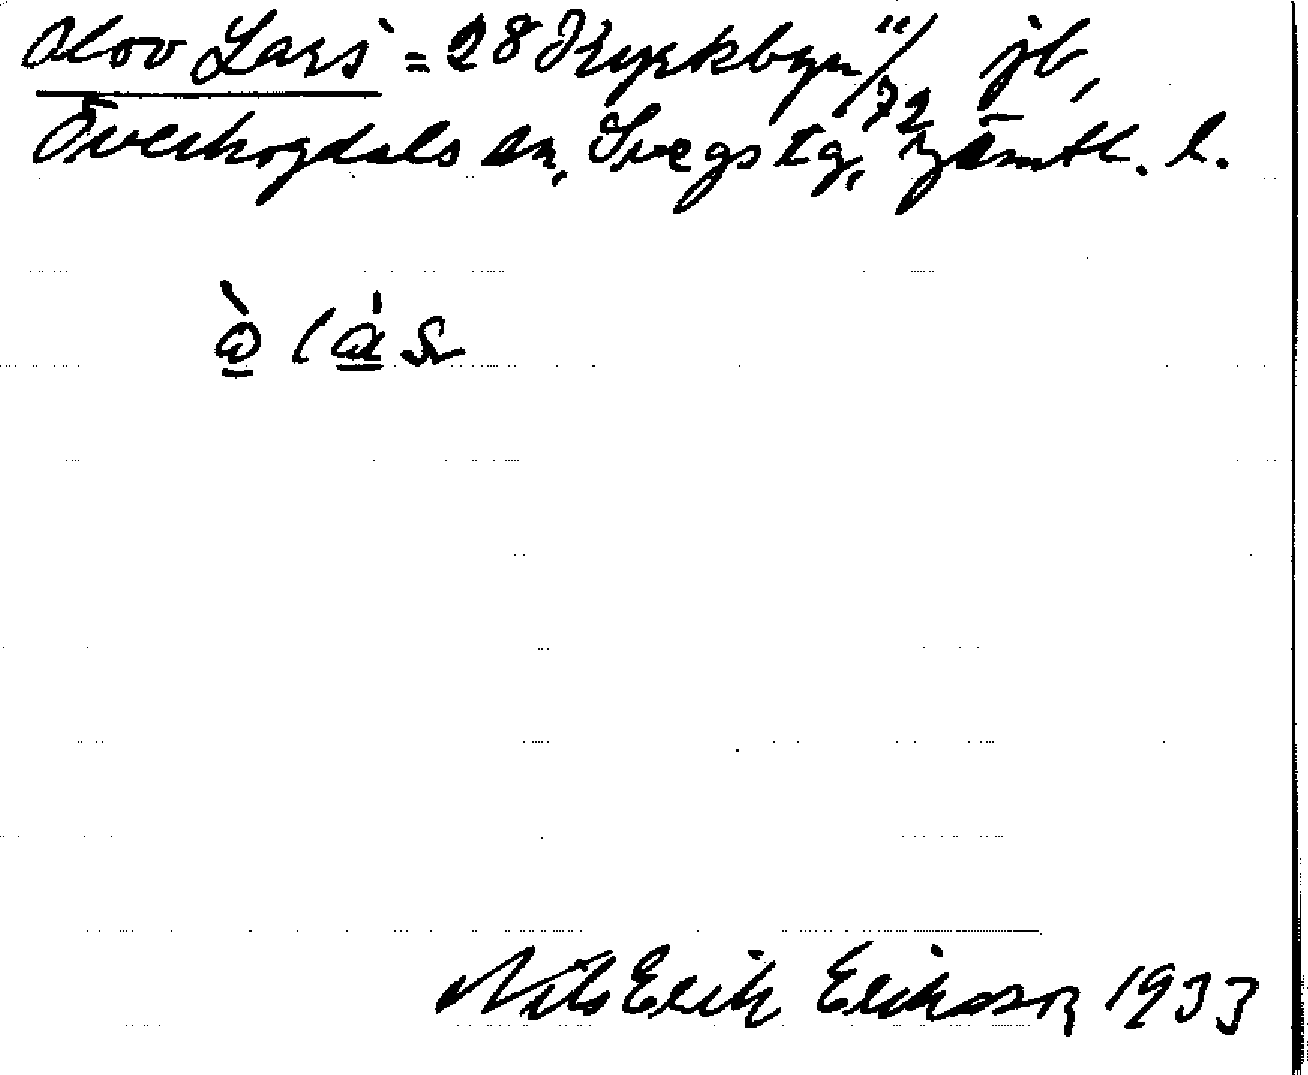 Olov Lars = 28 Kyrkbyn 11/72 jb,
Överhogdals sn, Svegs tg, Jämtl. l.
Nils Erik Eriksson 1933